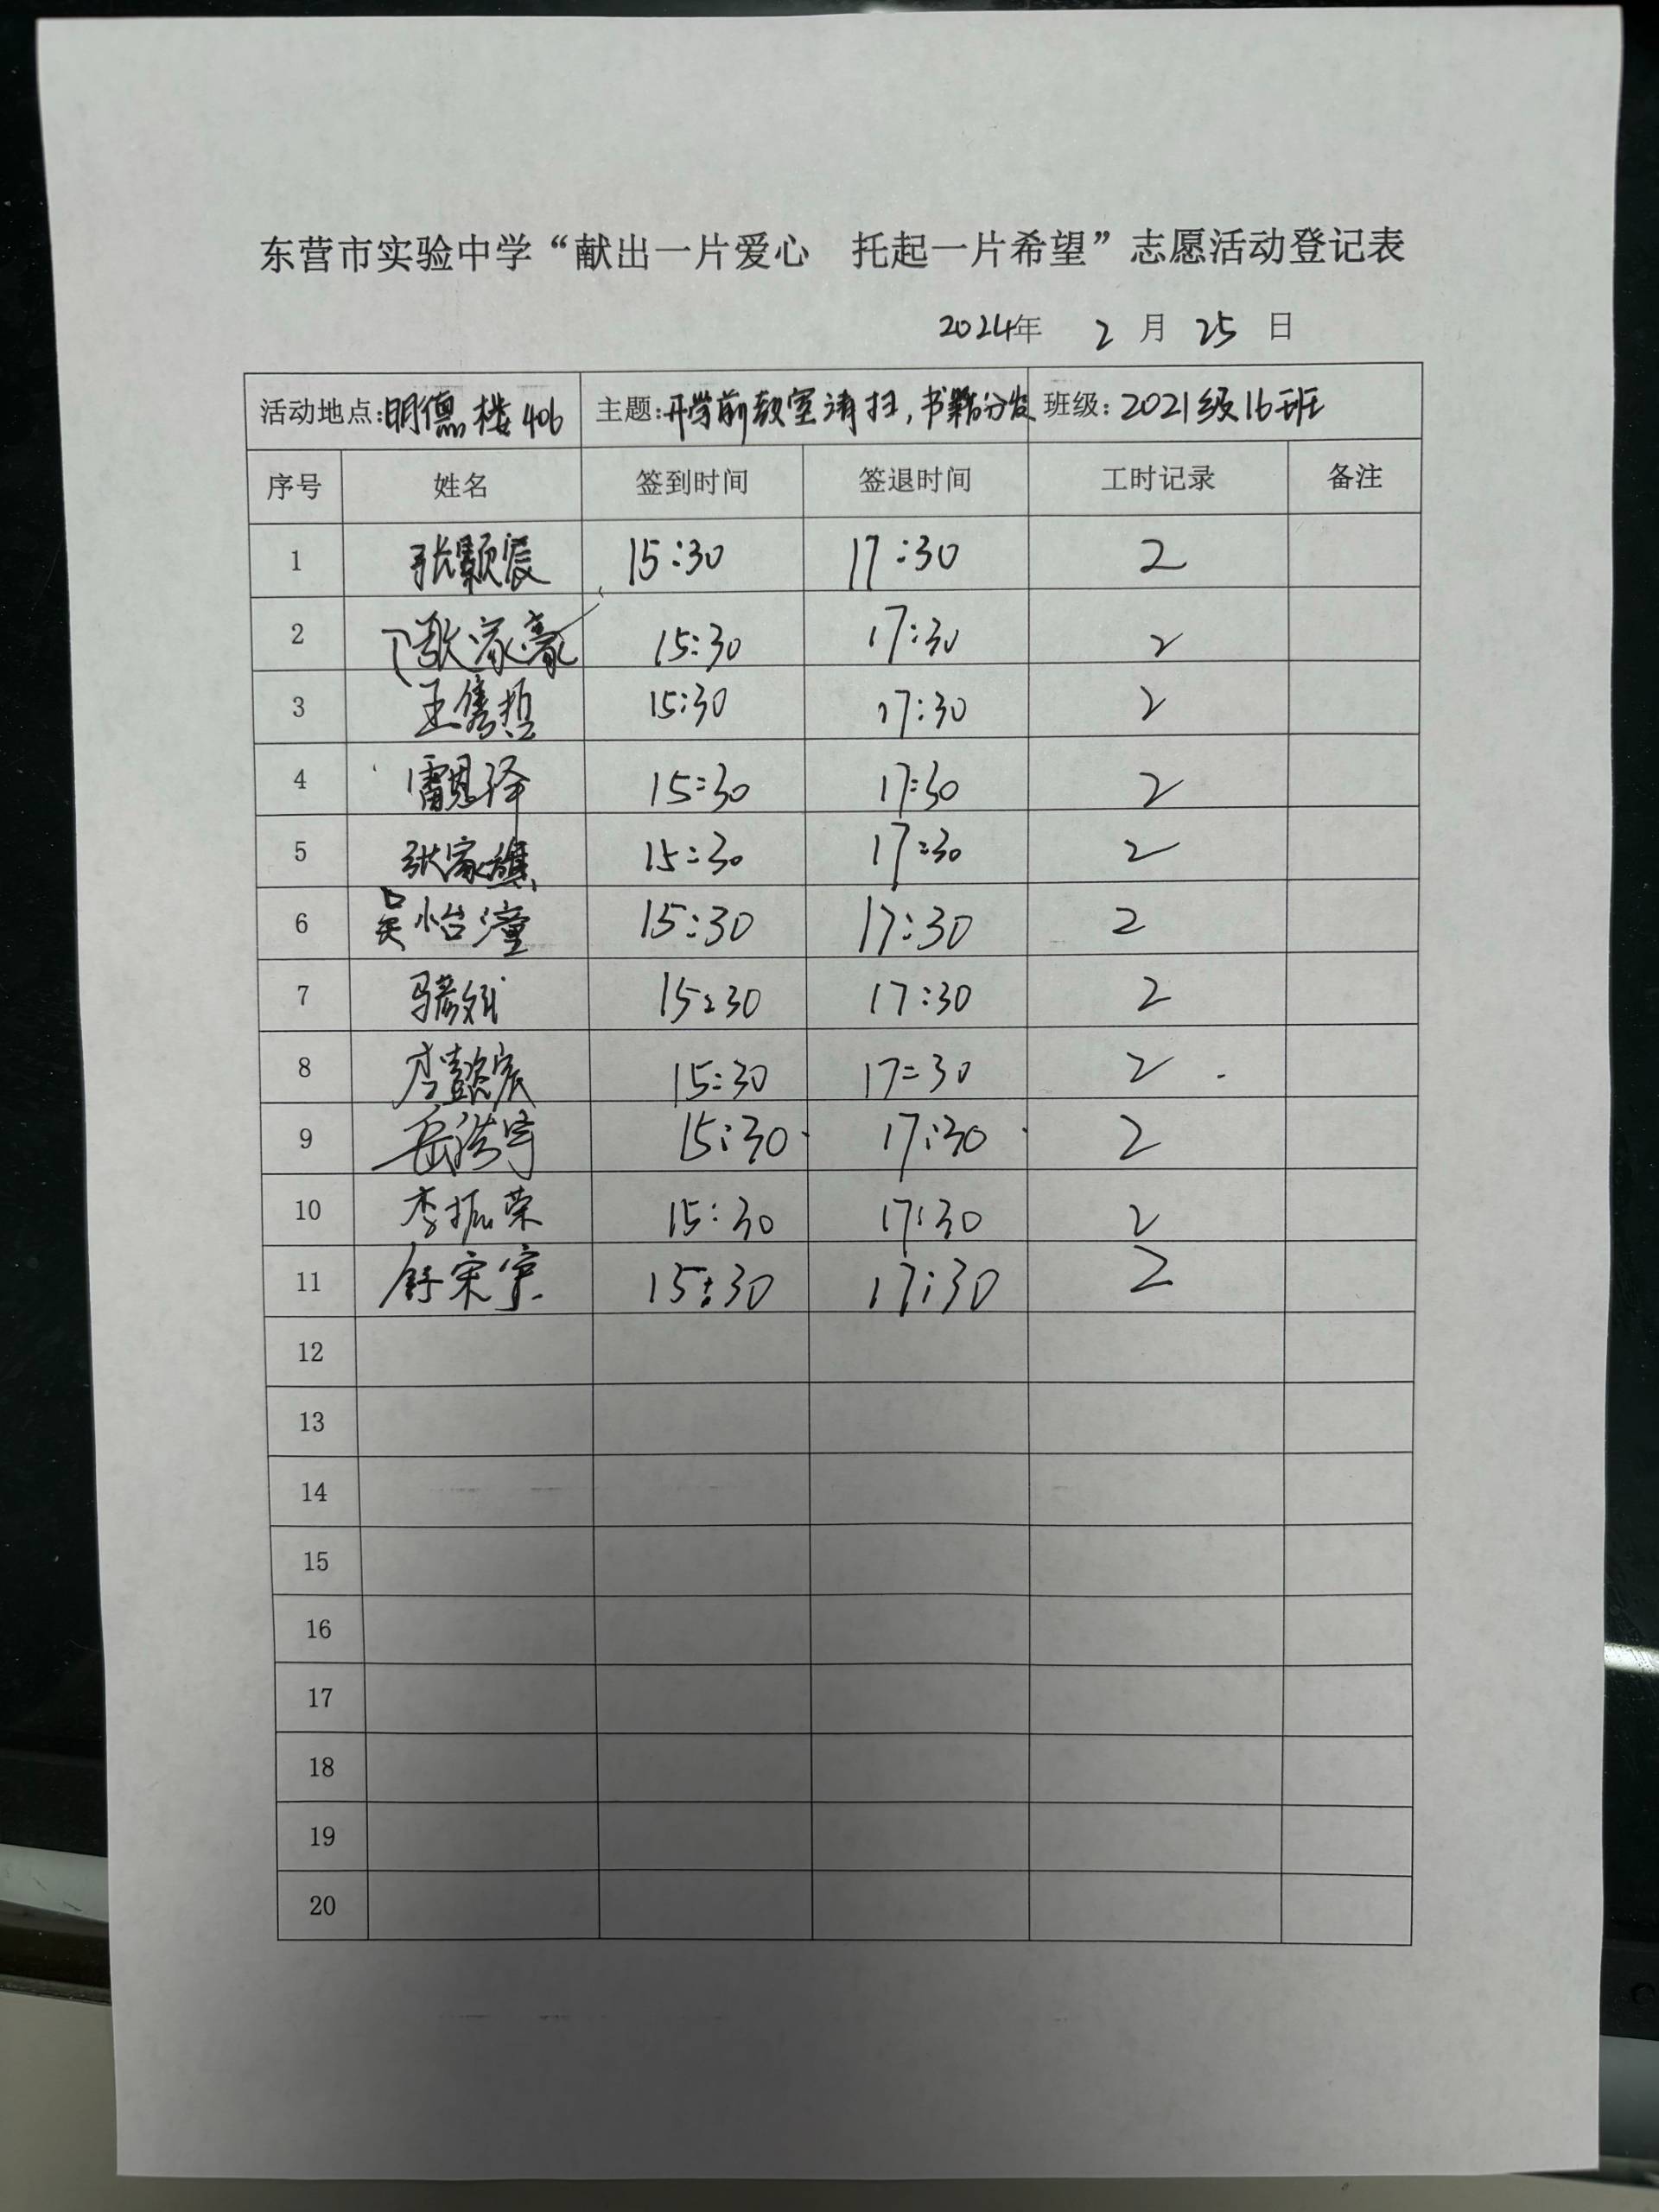 东营市实验中学“献出一片爱心 托起一片希望”志愿活动登记表
2024年 2 月 25 日
活动地点:明德楼406 主题:开学前教室清扫,书籍分发 班级:2021级16班
序号 姓名 签到时间 签退时间 工时记录 备注
1 张颢宸 15:30 17:30 2
2 家豪 15:30 17:30 2
3 王隽哲 15:30 17:30 2
4 雷恩泽 15:30 17:30 2
5 张家旗 15:30 17:30 2
6 吴怡潼 15:30 17:30 2
7 马彦斌 15:30 17:30 2
8 李懿宸 15:30 17:30 2
9 岳浩宇 15:30 17:30 2
10 李振荣 15:30 17:30 2
11 15:30 17:30 2
12
13
14
15
16
17
18
19
20